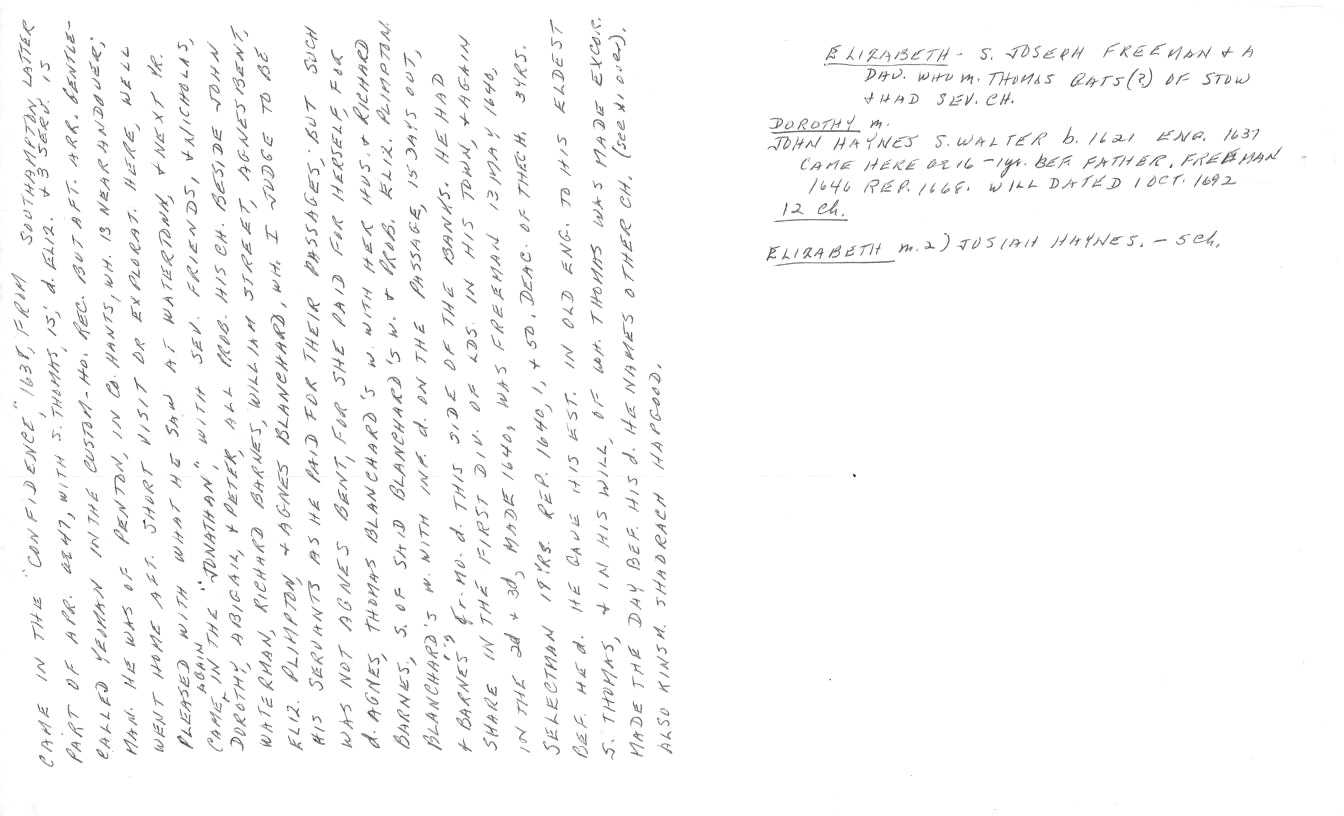 CAME IN THE "CONFIDENCE," 1638, FROM SOUTHAMPTON, LATTER
PART OF APR. AE 47, WITH S. THOMAS, 15; d. ELIZ. & 3 SERV. IS
CALLED YEOMAN IN THE CUSTOM-HO. REC. BUT AFT. ARR. GENTLE-
MAN. HE WAS OF PENTON, IN CO. HANTS, WH. IS NEAR ANDOVER;
WENT HOME AFT. SHORT VISIT OR EXPLORAT. HERE, WELL
PLEASED WITH WHAT HE SAW AT WATERTOWN, & NEXT YR.
CAME AGAIN IN THE "JONATHAN," WITH SEV. FRIENDS, & NICHOLAS,
DOROTHY, ABIGAIL, & PETER, ALL PROB. HIS CH. BESIDE JOHN
WATERMAN, RICHARD BARNES, WILLIAM STREET, AGNES BENT,
ELIZ. PLIMPTON, & AGNES BLANCHARD, WH. I JUDGE TO BE
HIS SERVANTS AS HE PAID FOR THEIR PASSAGES. BUT SUCH
WAS NOT AGNES BENT, FOR SHE PAID FOR HERSELF, FOR
d. AGNES, THOMAS BLANCHARD'S W. WITH HER HUS. & RICHARD
BARNES, S. OF SAID BLANCHARD'S W. & PROB. ELIZ. PLIMPTON.
BLANCHARD'S W. WITH INF. d. ON THE PASSAGE, 15 DAYS OUT,
& BARNES' gr. mo. d. THIS SIDE OF THE BANKS. HE HAD
SHARE IN THE FIRST DIV. OF LDS. IN HIS TOWN, & AGAIN
IN THE 2d & 3d, MADE 1640, WAS FREEMAN 13 MAY 1640,
SELECTMAN 19 YRS. REP. 1640, 1, & 50. DEAC. OF THE CH. 34 YRS.
BEF. HE d. HE GAVE HIS EST. IN OLD ENG. TO HIS ELDEST
S. THOMAS, & IN HIS WILL, OF WH. THOMAS WAS MADE EXCOR.
MADE THE DAY BEF. HIS d. HE NAMES OTHER CH. (see above).
ALSO KINSM. SHADRACH HAPGOOD.
ELIZABETH - S. JOSEPH FREEMAN & A
DAU. WHO m. THOMAS GATS (?) OF STOW
& HAD SEV. CH.
DOROTHY m.
JOHN HAYNES S. WALTER b. 1621 ENG. 1637
CAME HERE AE 16 - 1 yr. BEF. FATHER. FREEMAN
1646 REP. 1668. WILL DATED 1 OCT. 1692
12 Ch.
ELIZABETH m. 2) JOSIAH HAYNES. - 5 Ch.